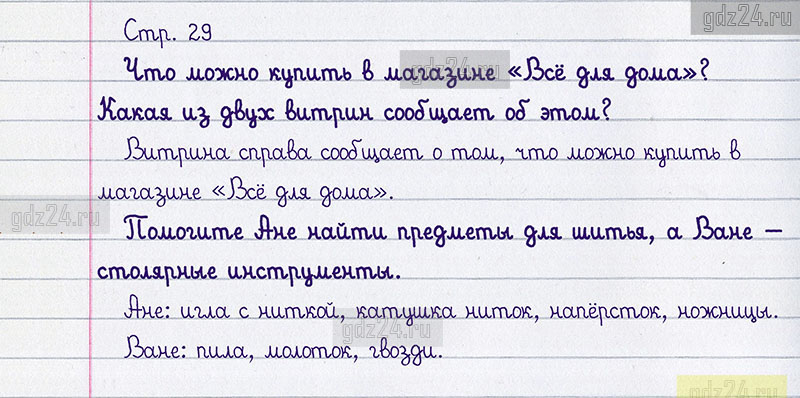 gdz24.ru
Стр. 29
gdz24.ru
Что можно купить в магазине «Всё для дома»?
gdz24.ru
Какая из двух витрин сообщает об этом?
Витрина справа сообщает о том, что можно купить в
магазине «Всё для дома».
gdz24.ru
Помогите Ане найти предметы для шитья, а Ване —
столярные инструменты.
Ане: игла с ниткой, катушка ниток, напёрсток, ножницы.
gdz24.ru
Ване: пила, молоток, гвозди.
gdz24.ru